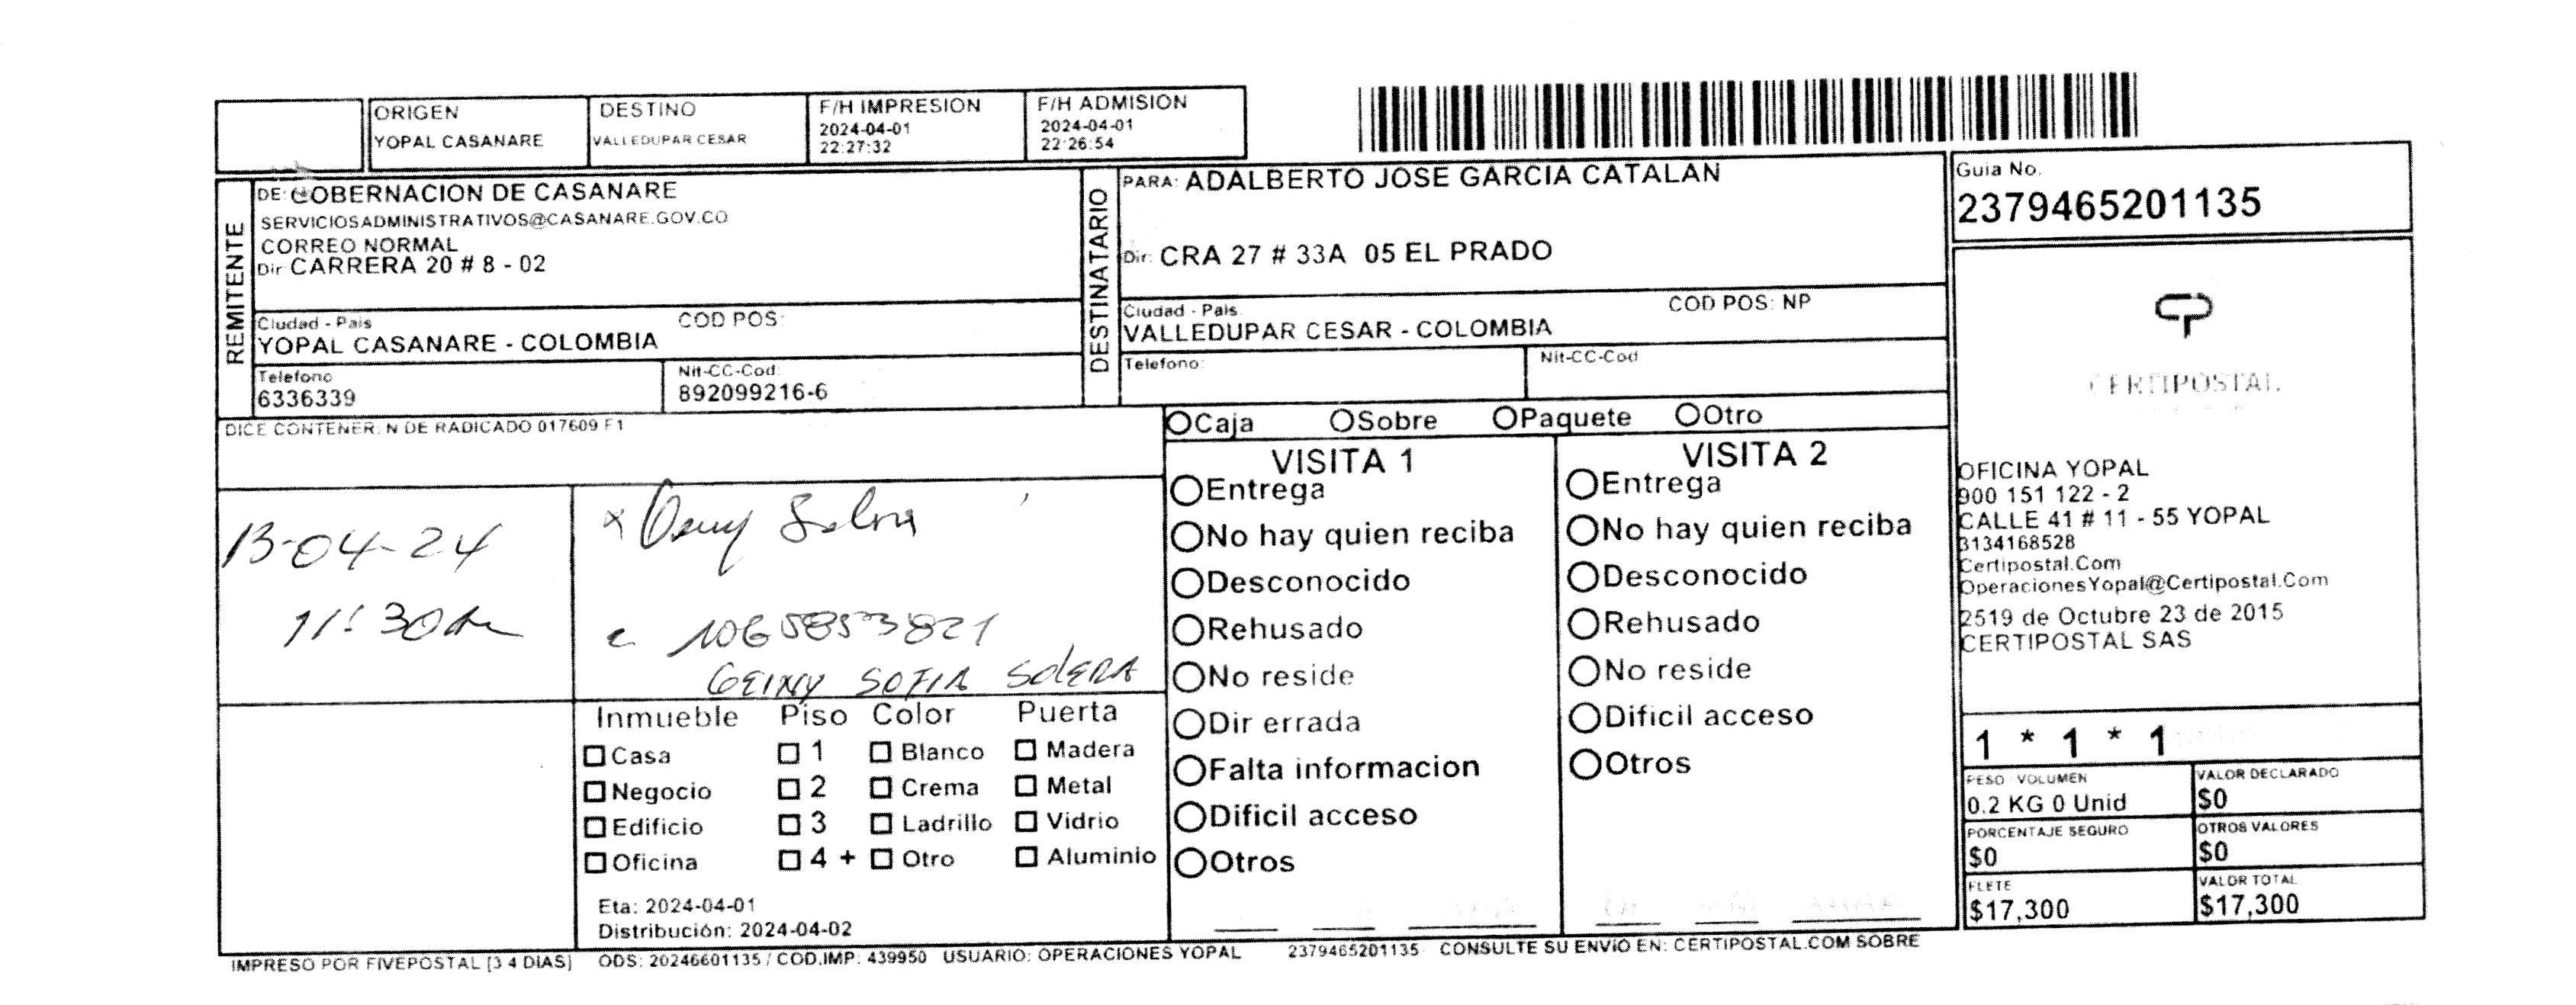 ORIGEN
YOPAL CASANARE
DESTINO
VALLEDUPAR CESAR
F/H IMPRESION
2024-04-01
22:27:32
F/H ADMISION
2024-04-01
22:26:54
REMITENTE
DE: GOBERNACION DE CASANARE
SERVICIOSADMINISTRATIVOS@CASANARE.GOV.CO
CORREO NORMAL
Dir CARRERA 20 # 8 - 02
Ciudad - Pais
COD POS:
YOPAL CASANARE - COLOMBIA
Telefono
6336339
Nit-CC-Cod:
892099216-6
DESTINATARIO
PARA: ADALBERTO JOSE GARCIA CATALAN
Dir: CRA 27 # 33A 05 EL PRADO
Ciudad - Pais
COD POS: NP
VALLEDUPAR CESAR - COLOMBIA
Telefono:
Nit-CC-Cod
Guia No.
2379465201135
CERTIPOSTAL
OFICINA YOPAL
900 151 122 - 2
CALLE 41 # 11 - 55 YOPAL
3134168528
Certipostal.Com
OperacionesYopal@Certipostal.Com
2519 de Octubre 23 de 2015
CERTIPOSTAL SAS
1 * 1 * 1
PESO VOLUMEN
0.2 KG 0 Unid
VALOR DECLARADO
$0
PORCENTAJE SEGURO
$0
OTROS VALORES
$0
FLETE
$17,300
VALOR TOTAL
$17,300
DICE CONTENER: N DE RADICADO 017609 F1
Caja Sobre Paquete Otro
13-04-24
11:30am
1065853821
GEINY SOFIA SOLERA
VISITA 1
Entrega
No hay quien reciba
Desconocido
Rehusado
No reside
Dir errada
Falta informacion
Dificil acceso
Otros
VISITA 2
Entrega
No hay quien reciba
Desconocido
Rehusado
No reside
Dificil acceso
Otros
Inmueble Piso Color Puerta
Casa 1 Blanco Madera
Negocio 2 Crema Metal
Edificio 3 Ladrillo Vidrio
Oficina 4 + Otro Aluminio
Eta: 2024-04-01
Distribución: 2024-04-02
IMPRESO POR FIVEPOSTAL [3 4 DIAS] ODS: 20246601135 / COD.IMP: 439950 USUARIO: OPERACIONES YOPAL 2379465201135 CONSULTE SU ENVIO EN: CERTIPOSTAL.COM SOBRE